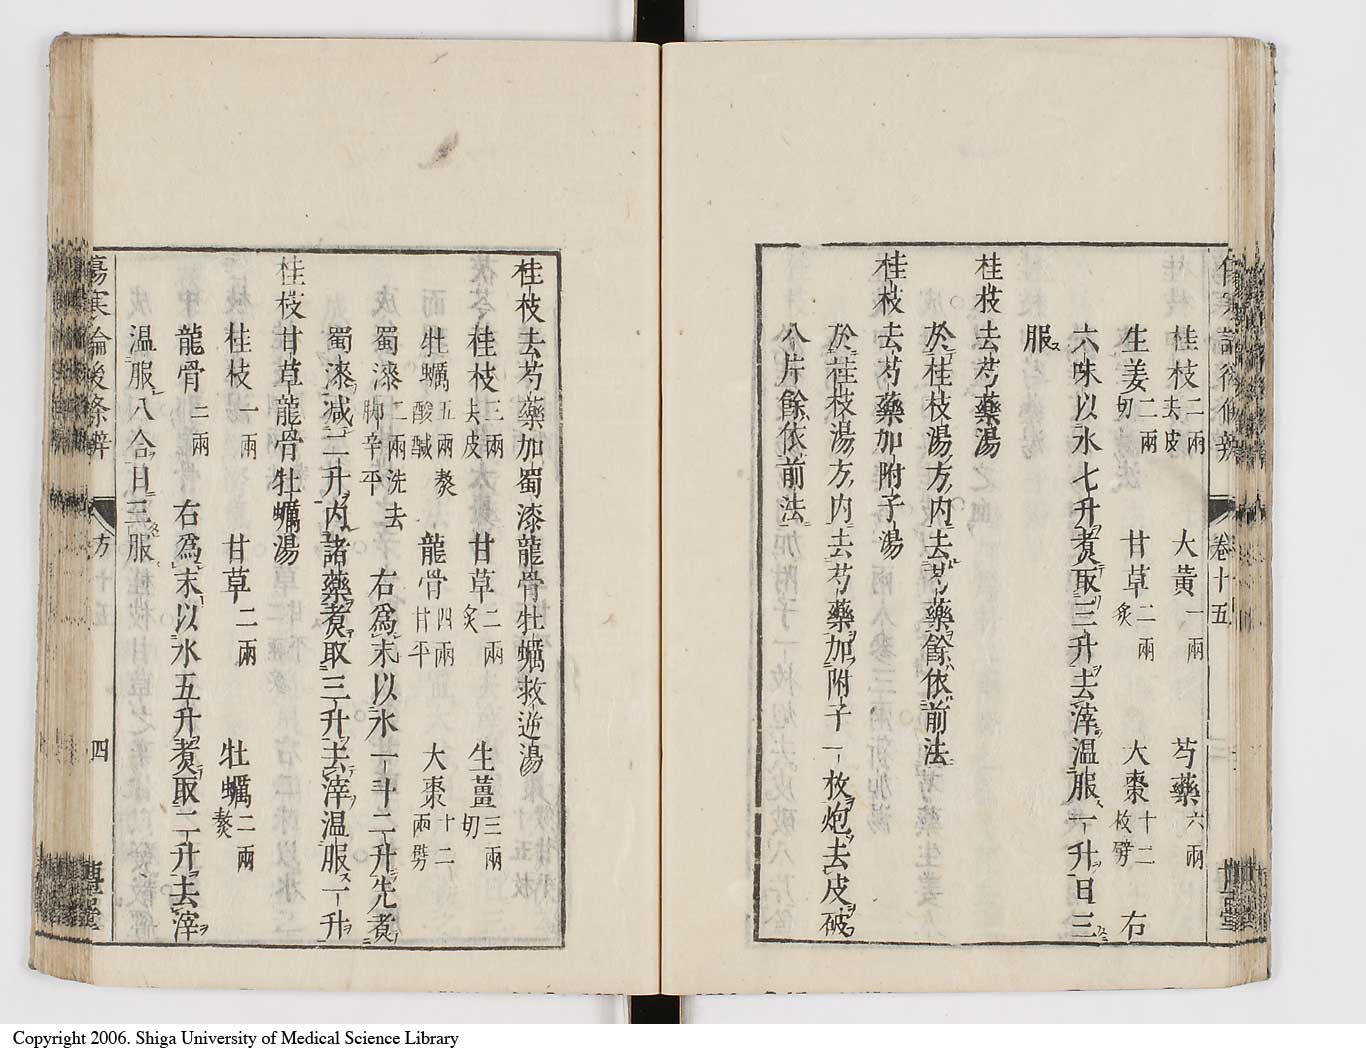 桂枝二兩去皮 大黃一兩 芍藥六兩
生姜二兩切 甘草二兩炙 大棗十二枚劈 右
六味以水七升煑取三升去滓温服一升日三
服
桂枝去芍藥湯
於桂枝湯方内去芍藥餘依前法
桂枝去芍藥加附子湯
於桂枝湯方内去芍藥加附子一枚炮去皮破
八片餘依前法
卷十五
桂枝去芍藥加蜀漆龍骨牡蠣救逆湯
桂枝三兩去皮 甘草二兩炙 生薑三兩切
牡蠣五兩熬酸鹹 龍骨四兩甘平 大棗十二兩劈
蜀漆二兩洗去脚辛平 右爲末以水一斗二升先煑
蜀漆减二升内諸藥煑取三升去滓温服一升
桂枝甘草龍骨牡蠣湯
桂枝一兩 甘草二兩 牡蠣二兩熬
龍骨二兩 右爲末以水五升煑取二升去滓
温服八合日三服
傷寒論後條辨 方 四
Copyright 2006. Shiga University of Medical Science Library